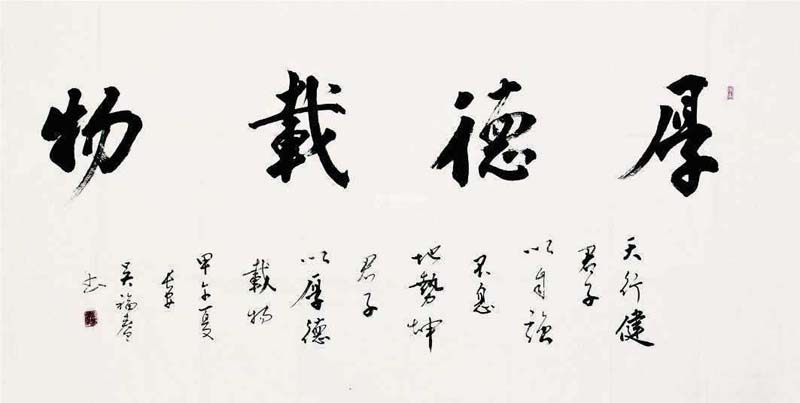 厚德載物
天行健
君子
以自強
不息
地勢坤
君子
以厚德
載物
甲午夏
長安
吴福春
书